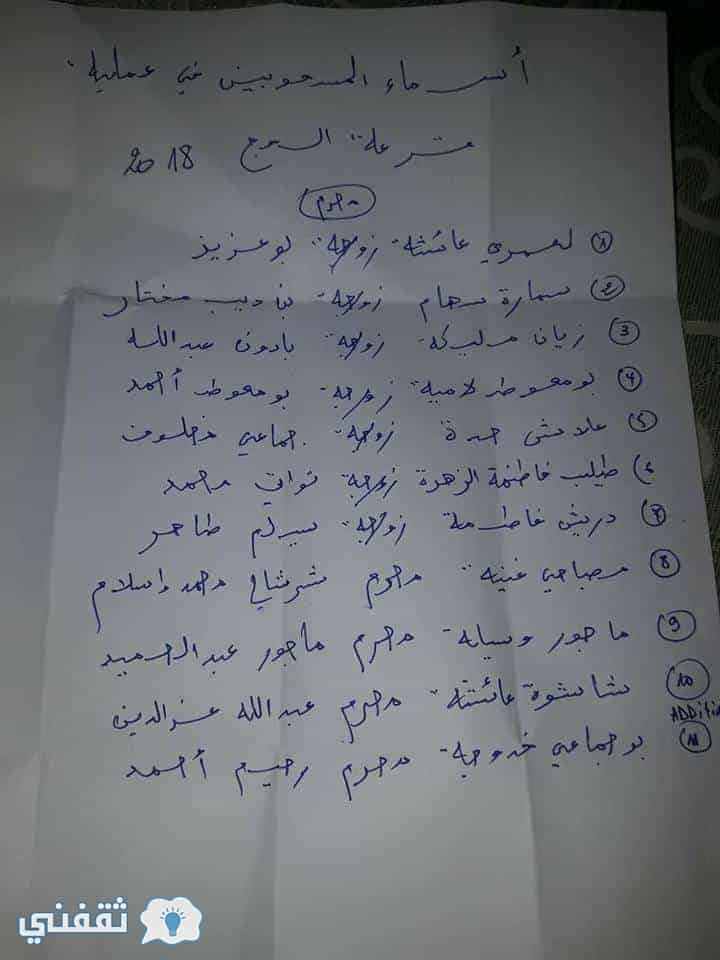 أسماء المسحوبين في عملية
قرعة الحج 2018
محرم
1 لعمري عائشة زوجة بوعزيز
2 سمارة سهام زوجة بن ديب مختار
3 زيان مليكة زوجة بادون عبد الله
4 بومعوط لامية زوجة بومعوط أحمد
5 علاش حدة زوجة جماعي مخلوف
6 طيلب فاطمة الزهرة زوجة نواني محمد
7 دريش فاطمة زوجة طاهر
8 مصباحي غنية محرم شرشالي محمد واسلام
9 ماجور وسيلة محرم ماجور عبد الحميد
10 شاشوة عائشة محرم عبد الله عز الدين
ADDitio
11 بوجماعي خدوجة محرم رحيم أحمد
ثقفني